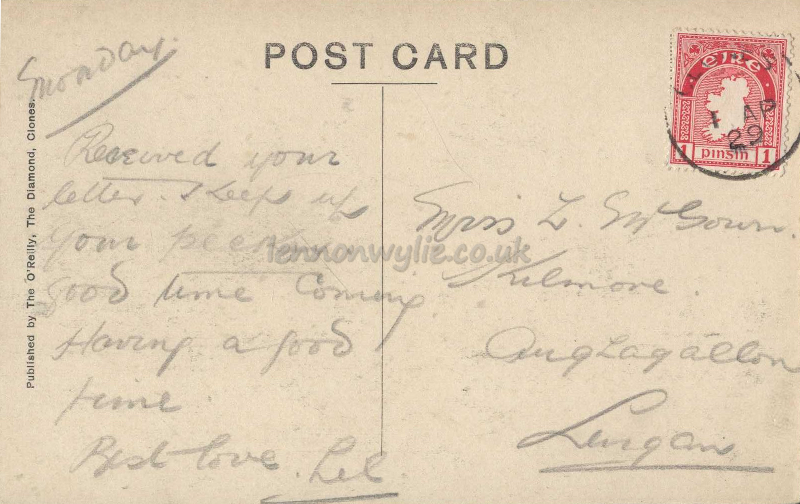 POST CARD
Monday.
Received your
letter. Keep up
your pecker
good time Coming
Having a good
time.
Best love. Lel
Miss L. McGown.
Kilmore.
Aughagallon
Lurgan
éire
1 pinsin 1
1 AP
29
Published by The O'Reilly, The Diamond, Clones.
lennonwylie.co.uk